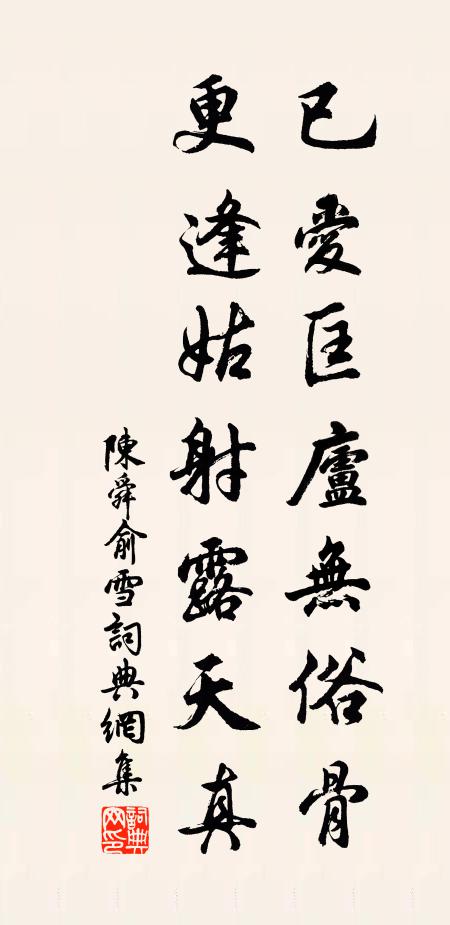 已愛匡廬無俗骨
更逢姑射露天真
陳舜俞雪詞典網集
詞典網印